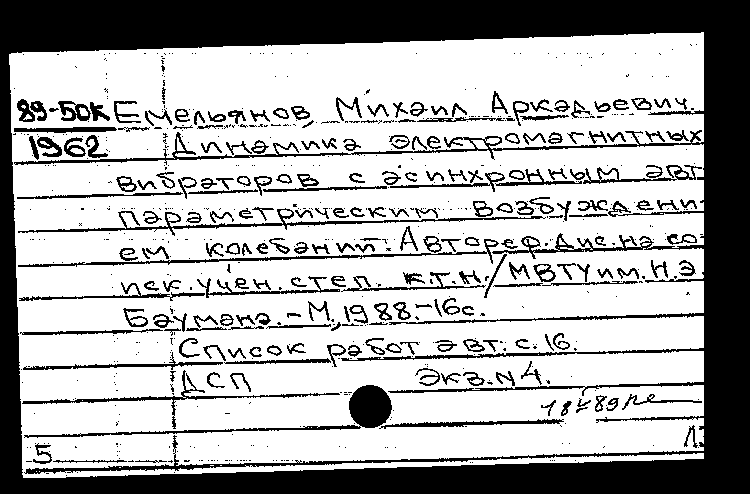 89-50К Емельянов, Михаил Аркадьевич.
1962 Динамика электромагнитных
вибраторов с асинхронным авт
параметрическим возбуждени
ем колебаний: Автореф. дис. на со
иск. учён. степ. к.т.н. / МВТУ им. Н.Э.
Баумана. - М., 1988. - 16 с.
Список работ авт.: с. 16.
ДСП Экз. N 4.
5